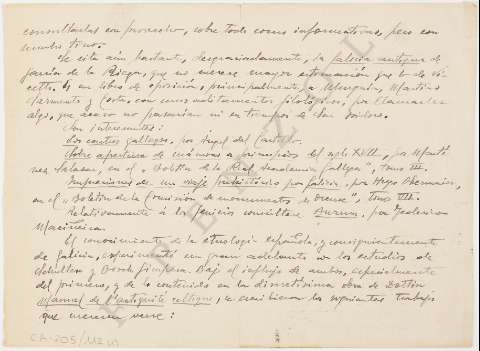 consultarlas con provecho, sobre todo como informativas, pero con
mucho tino.
Se cita aún bastante, desgraciadamente, la Galicia antigua de
García de la Riega, que no merece mayor estimación que lo de Vi
cetto. Es un libro de oposición, principalmente a Murguía, Martínez
Sarmiento y Costa, con unos aditamentos filológicos, por llamarles
algo, que acaso no pasarían ni en tiempos de San Isidoro.
Son interesantes:
Los castros gallegos, por Ángel del Castillo.
Sobre apertura de mámoas a principios del siglo XVII, por Martí
nez Salazar, en el "Boletín de la Real Academia Gallega", tomo III.
Impresiones de un viaje prehistórico por Galicia, por Hugo Obermaier,
en el "Boletín de la Comisión de monumentos de Orense", tomo VII.
Relativamente a los fenicios consúltese Burum, por
Maciñeira.
El conocimiento de la etnología española, y consiguientemente
de Galicia, experimentó un gran adelanto con los estudios de
Schulten y Bosch Gimpera. Bajo el influjo de ambos, especialmente
del primero, y de lo contenido en la discretísima obra de Dottin
Manuel de l'antiquité celtique, se escribieron los siguientes trabajos
que merecen verse:
CA-205/112